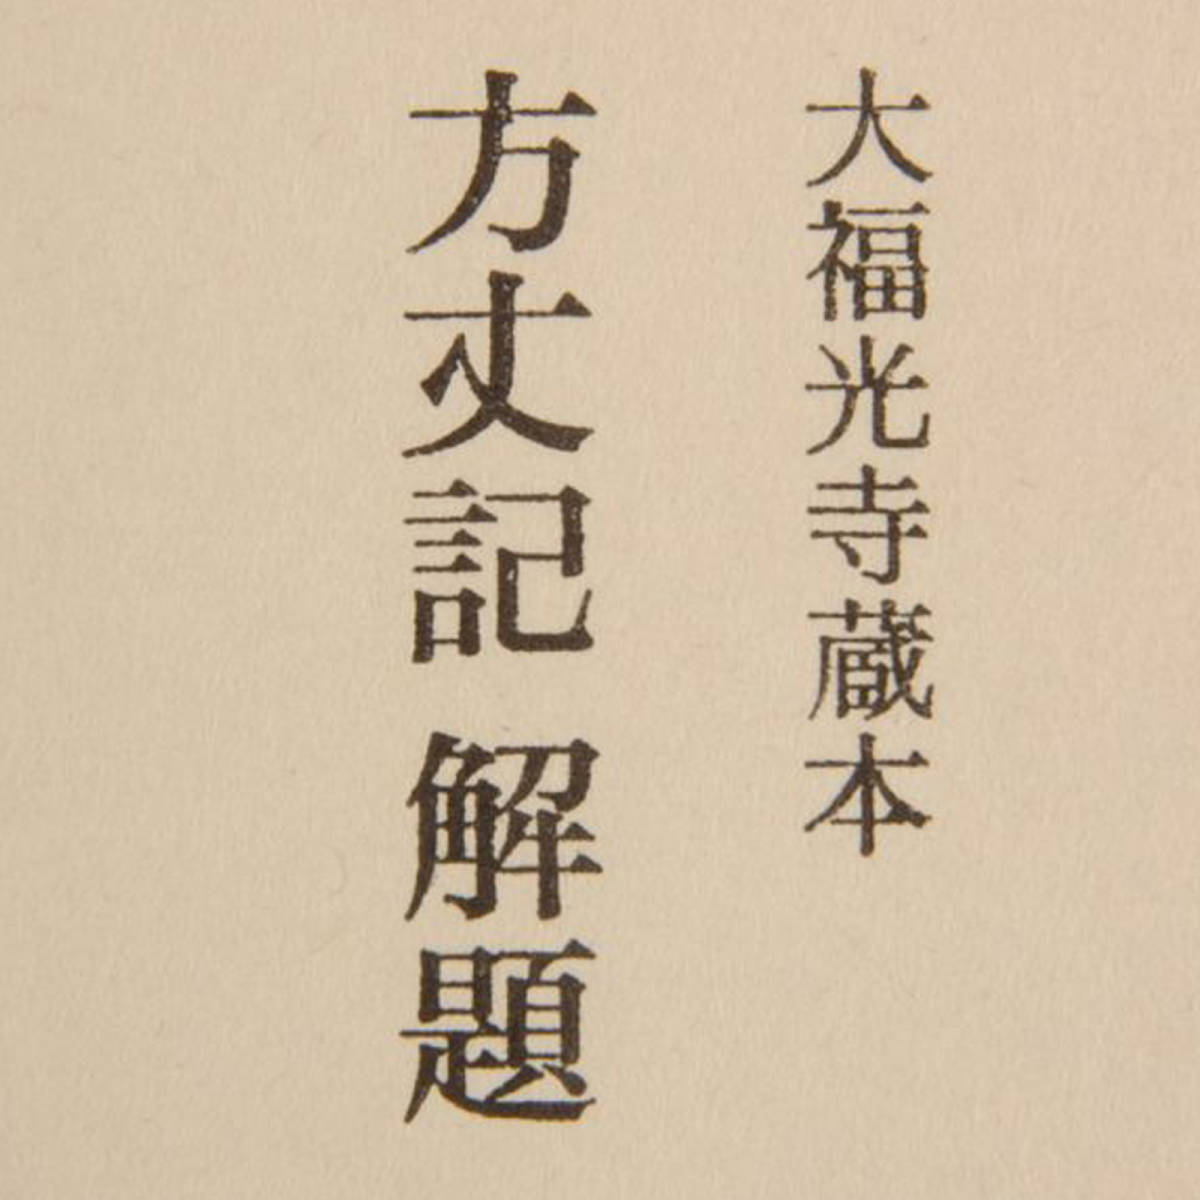 大福光寺蔵本
方丈記 解題